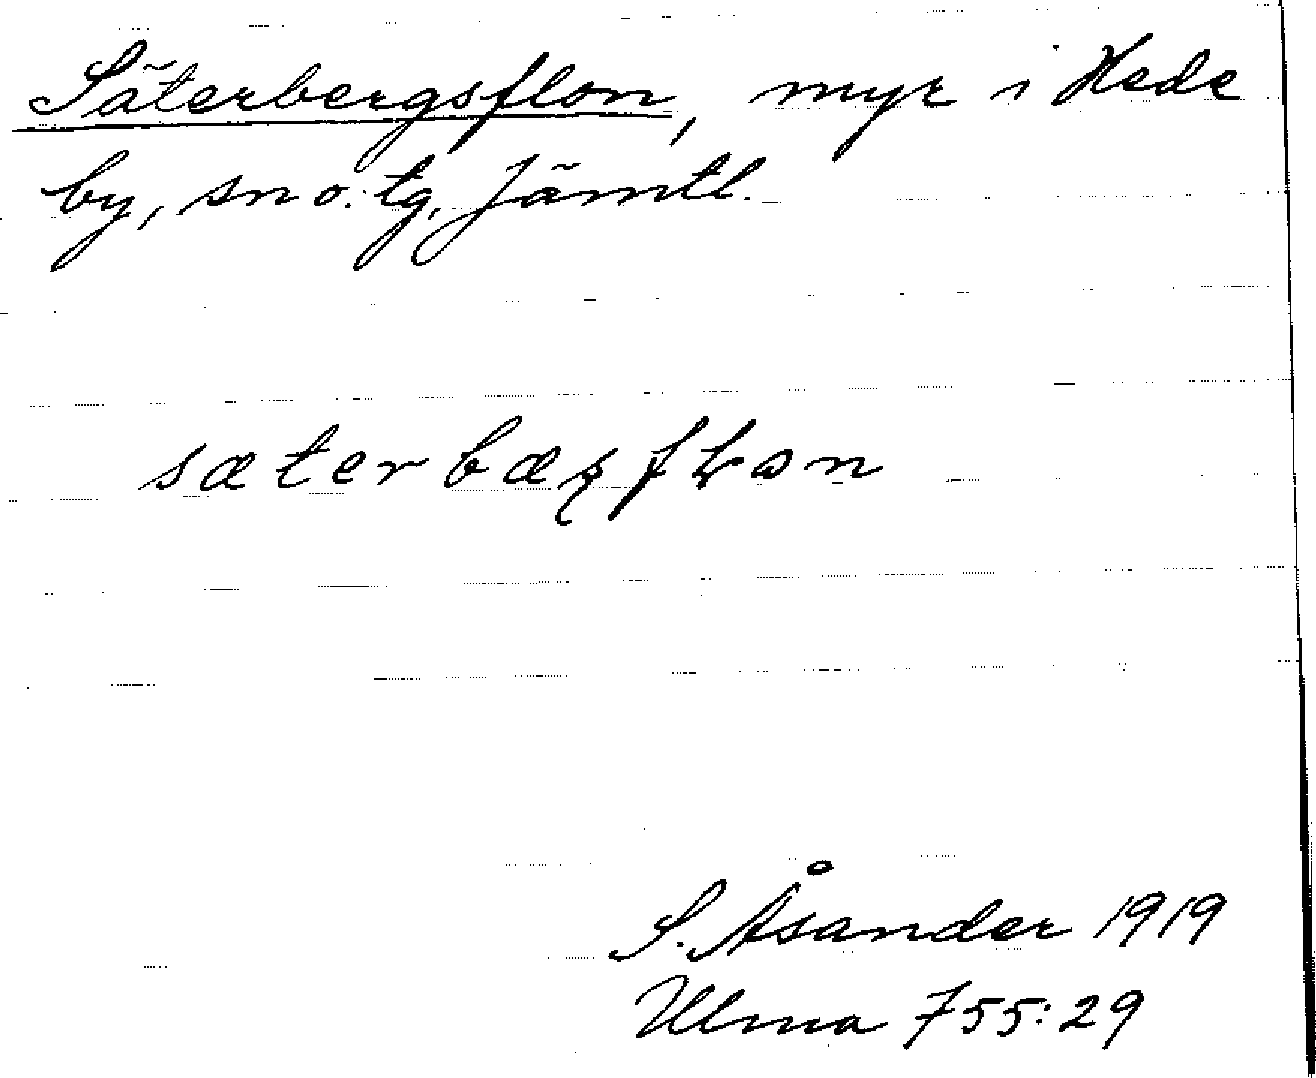 Säterbergsflon, myr i Hede
by, sn o. tg, Jämtl.
sæterbæʂfɽɔn
S. Åsander 1919
Ulma 755:29